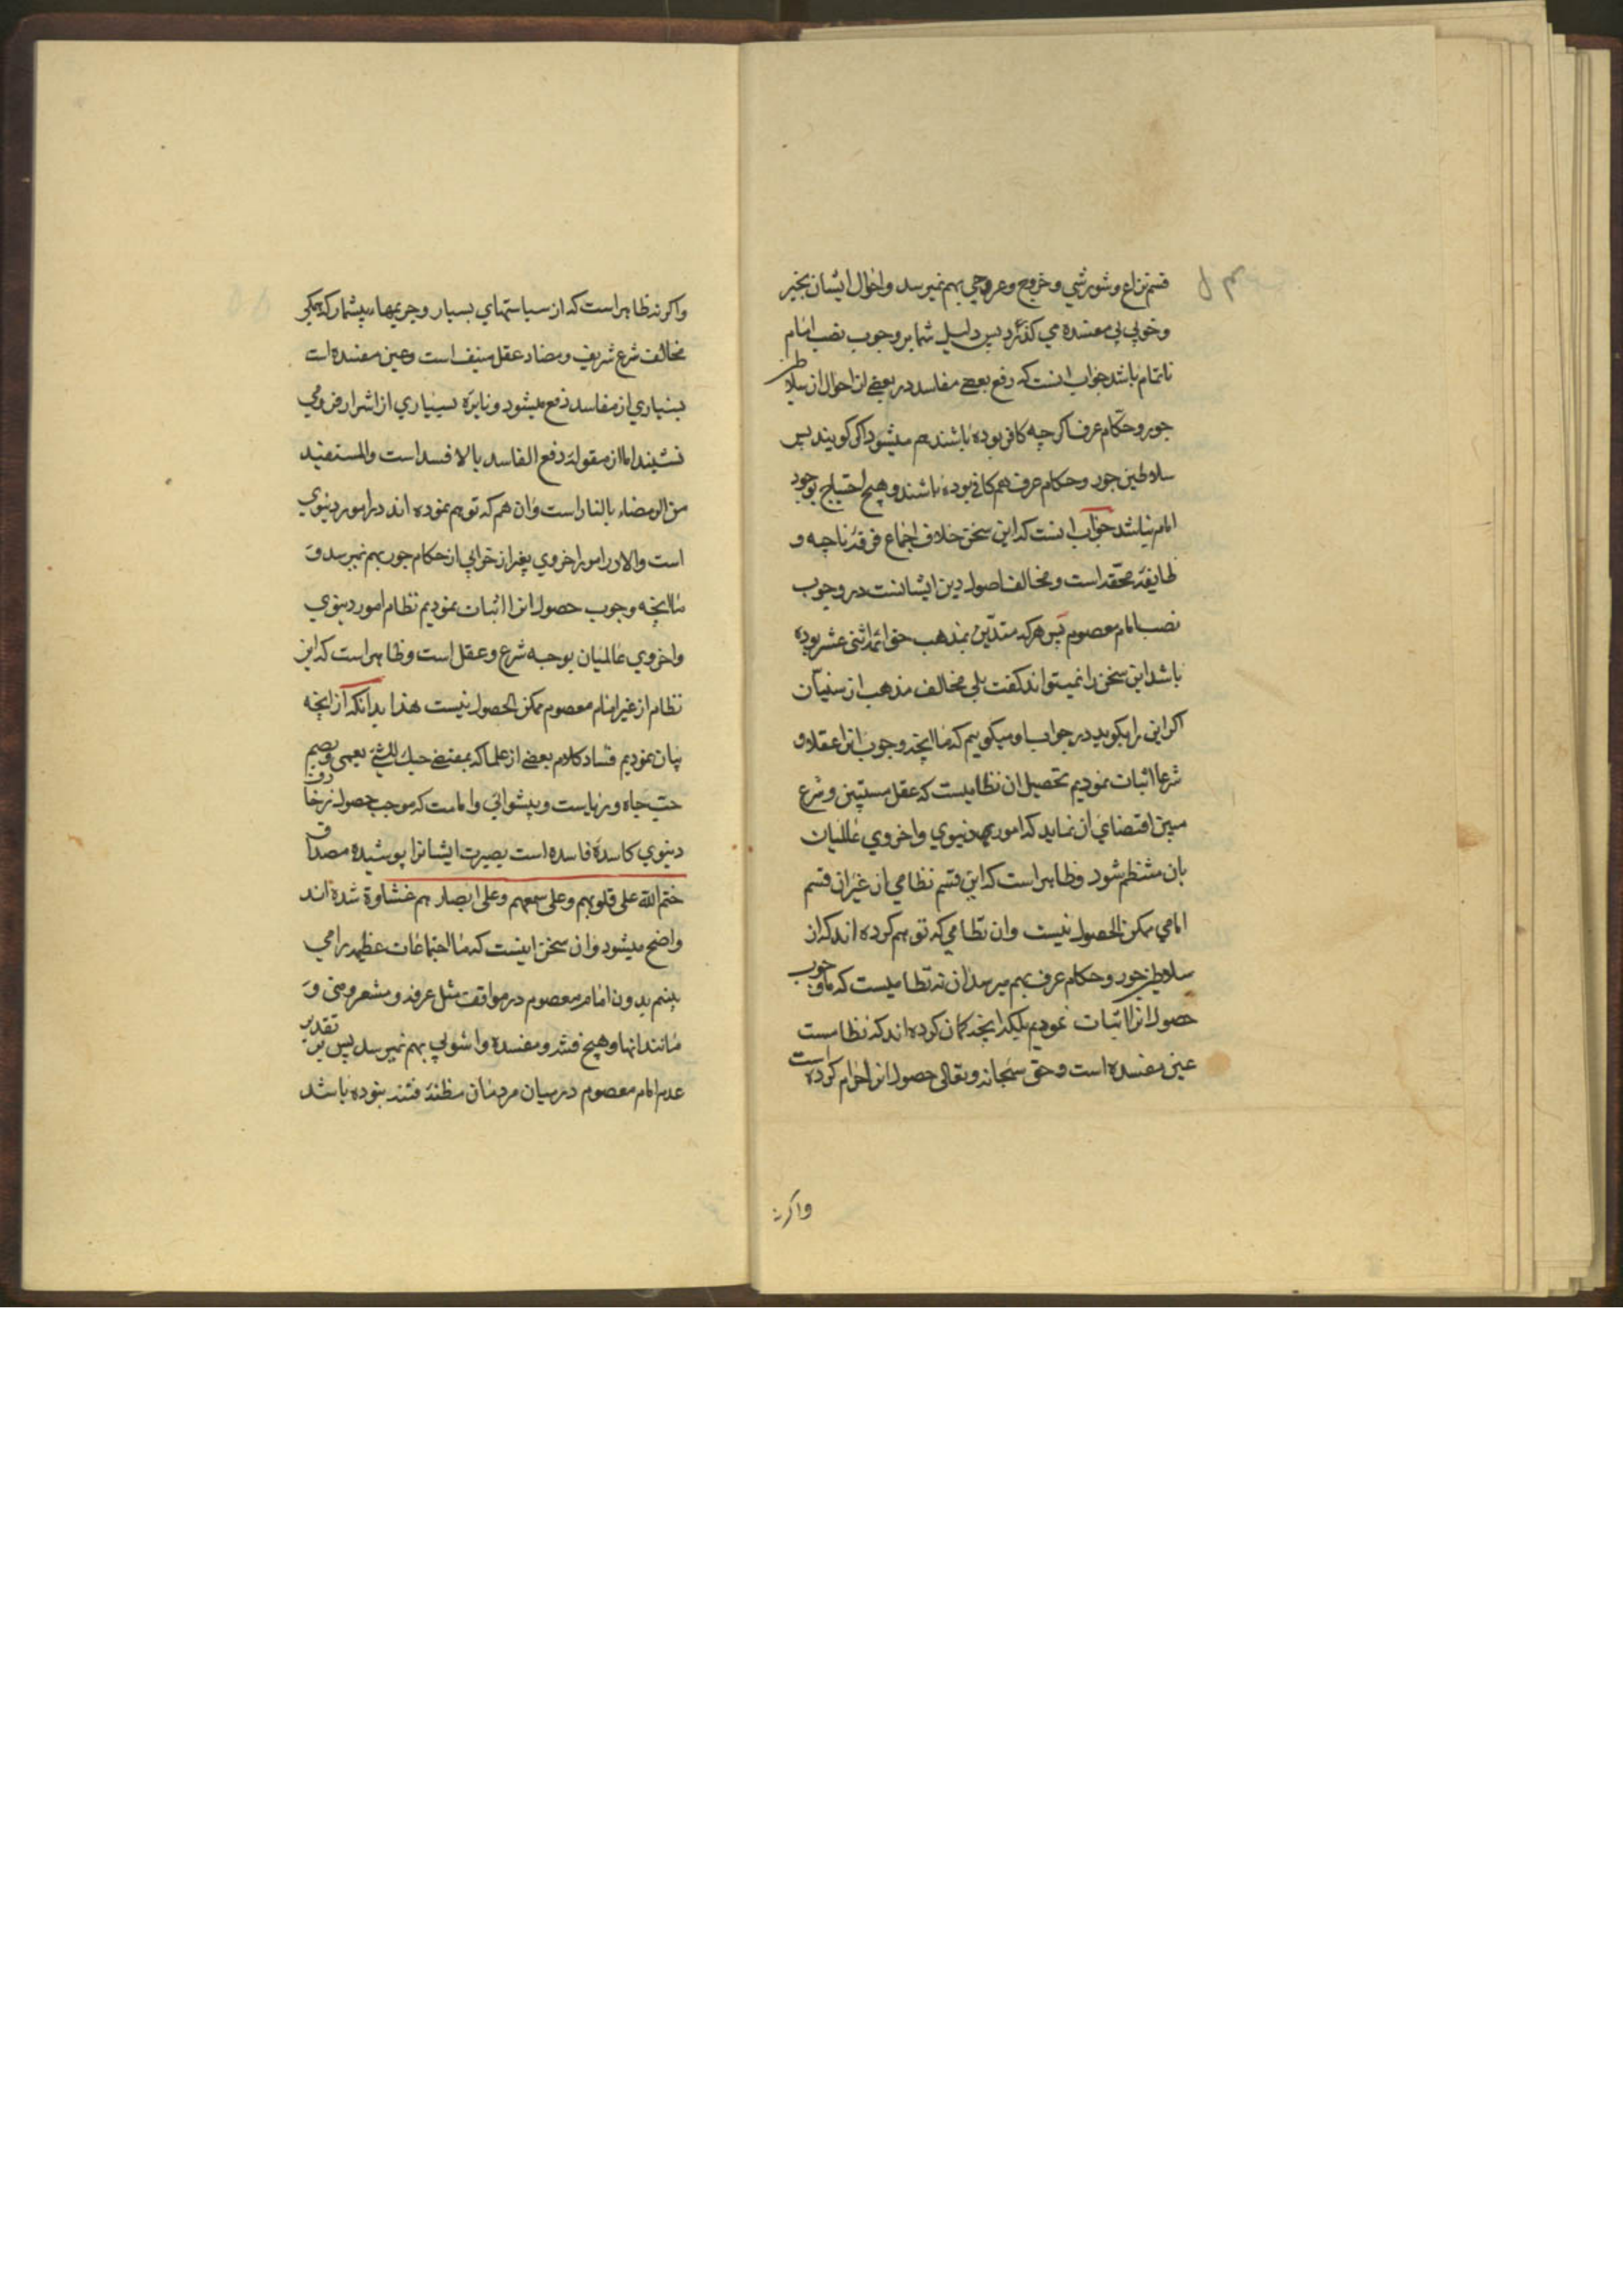 قسم نزاع و شورشي و خروج و عروجي بهم نمیرسد و احوال ایشان بخیر
و خوبی بی مفسده می کذرد پس دلیل شما بر وجوب نصب امام
ناتمام باشد جواب انست که دفع بعضے مفاسد در بعضے از احوال از سلاطین
جور و حکام عرف اکرچه کافر بوده باشند هم میشود اکر کویند پس
سلاطین جور و حکام عرف هم کافی بوده باشند و هیچ احتیاج بوجود
امام نباشد جواب انست که این سخن خلاف اجماع فرقهٔ ناجیه و
طایفهٔ محقه است و مخالف اصول دین ایشانست در وجوب
نصب امام معصوم پس هر که متدین بمذهب حق ائمه اثنی عشر بوده
باشد این سخن را نمیتواند کفت بلی مخالف مذهب از سنیان
اکر این را بکوید در جواب او میکوییم که ما انچه وجوب انرا عقلا و
شرعا اثبات نمودیم تحصیل ان نظامیست که عقل مستبین و شرع
مبین اقتضای ان نماید که امور دنیوي و اخروي عالمیان
بان منتظم شود و ظاهر است که این قسم نظامي از غیر ان قسم
امامي ممکن الحصول نیست و ان نظامي که توهم کرده اند که از
سلاطین جور و حکام عرف بهم میرسد ان نه نظامیست که ما وجوب
حصول انرا اثبات نمودیم بلکه انچه کمان کرده اند که نظامست
عین مفسده است و حق سبحانه و تعالی حصول انرا حرام کرده است
واکرنه
واکرنه ظاهر است که از سیاستهاي بسیار و جریمهاء بیشمار که همکی
مخالف شرع شریف و مضاد عقل منیف است و عین مفسده است
بسیاري از مفاسد دفع میشود و نایرّه بسیاري از اشرار فرو می
نشیند اما از مقولهٔ دفع الفاسد بالافسد است و المستفید
من الرمضاء بالنار است و ان هم که توهم نموده اند در امور دنیوي
است و الا در امور اخروي بغیر از خرابي از حکام جور بهم نمیرسد و
ما انچه وجوب حصول انرا اثبات نمودیم نظام امور دنیوي
و اخروي عالمیان بوجه شرع و عقل است و ظاهر است که این
نظام از غیر امام معصوم ممکن الحصول نیست هذا بدانکه از انچه
بیان نمودیم فساد کلام بعضے از علما که بمقتضے حبك للشيء یعمی و یصم
حب جاه و ریاست و پیشوائي و امامت که موجب حصول زخارف
دنیوي کاسدهٔ فاسده است بصیرت ایشانرا پوشیده مصداق
ختم الله علی قلوبهم و علی سمعهم و علی ابصارهم غشاوة شده اند
واضح میشود و ان سخن اینست که ما اجتماعات عظیمه را می
بینم بدون امام معصوم در مواقف مثل عرفه و مشعر و منی و
مانند انها و هیچ فتنه و مفسده و اشوبي بهم نمیرسد پس بر تقدیر
عدم امام معصوم در میان مردمان مظنهٔ فتنه نبوده باشد